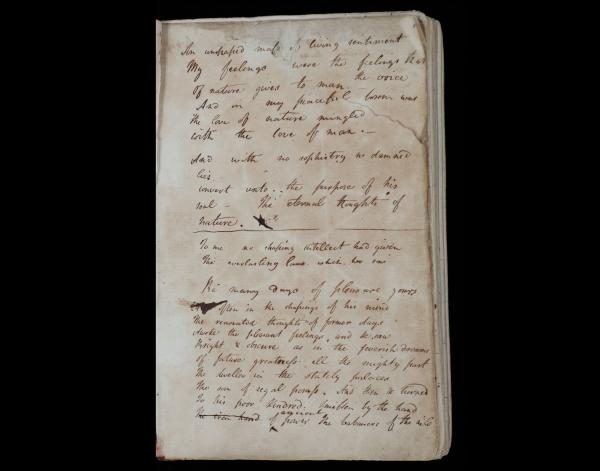 An unshaped mass of living sentiment
My feelings were the feelings that
the voice
Of nature gives to man.
And in my peaceful bosom was
The love of nature mingled
with the love of man. —
And with no sophistry no damned
lies
unto the purpose of his
soul — The eternal thoughts of
nature.
To me no shaping intellect had given
The everlasting laws. which
many Days of pleasure yours
often in the shapings of his mind
The renovated thoughts of former days
Awoke the pleasant feelings, and he saw
Bright & obscure as in the feverish dreams
of future greatness all the mighty past
The dwellers in the stately palaces
The son of regal pomp. And then he turned
To his poor kindred. Smitten by the hand
ancient
The iron hand of power The